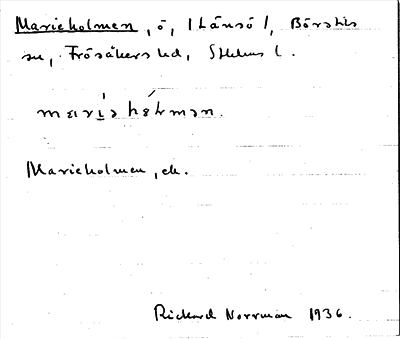 Marieholmen, ö, (Länsö), Börstils
sn, Frösåkers hd, Sthlms l.
Marieholmen, ek.
Rickard Norrman 1936.